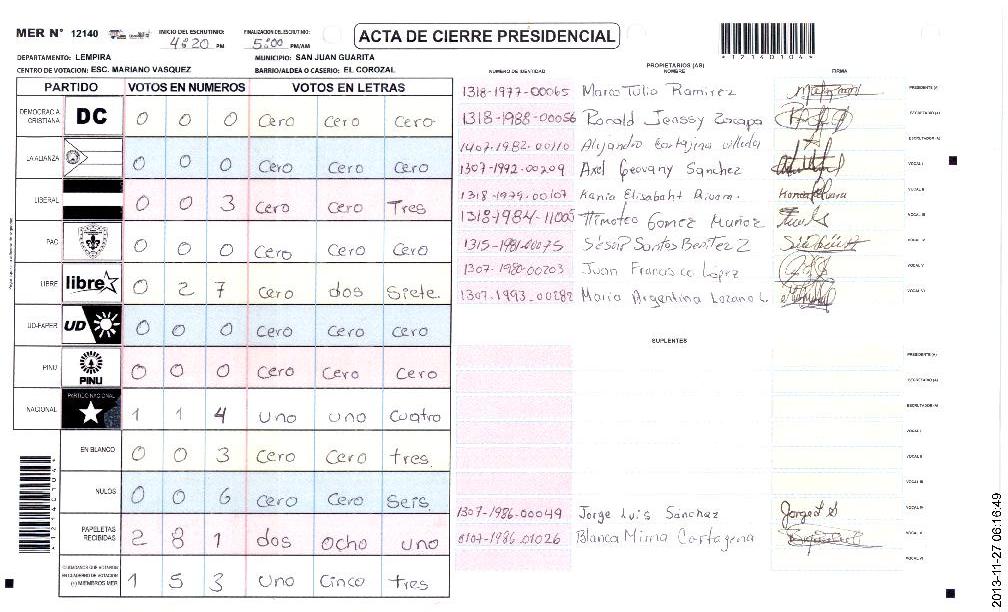 MER N° 12140 INICIO DEL ESCRUTINIO: 4:20 PM FINALIZACION DEL ESCRUTINIO: 5:00 PM/AM ACTA DE CIERRE PRESIDENCIAL *12140104*
DEPARTAMENTO: LEMPIRA MUNICIPIO: SAN JUAN GUARITA
CENTRO DE VOTACION: ESC. MARIANO VASQUEZ BARRIO/ALDEA O CASERIO: EL COROZAL
PARTIDO VOTOS EN NUMEROS VOTOS EN LETRAS
DEMOCRACIA CRISTIANA DC 0 0 0 Cero Cero Cero
LA ALIANZA 0 0 0 Cero Cero Cero
LIBERAL 0 0 3 Cero Cero Tres
PAC 0 0 0 Cero Cero Cero
LIBRE libre 0 2 7 Cero dos Siete.
UD-FAPER UD 0 0 0 Cero Cero Cero
PINU PINU 0 0 0 Cero Cero Cero
NACIONAL PARTIDO NACIONAL 1 1 4 Uno uno Cuatro
EN BLANCO 0 0 3 Cero Cero tres.
NULOS 0 0 6 Cero Cero Seis.
PAPELETAS RECIBIDAS 2 8 1 dos Ocho uno
CIUDADANOS QUE VOTARON EN CUADERNO DE VOTACION (+) MIEMBROS MER 1 5 3 Uno Cinco tres
PROPIETARIOS (AS)
NUMERO DE IDENTIDAD NOMBRE FIRMA
1318-1977-00065 Marco Tulio Ramirez PRESIDENTE (A)
1318-1988-00056 Ronald Jeassy Zacapa SECRETARIO (A)
1407-1982-00110 Alejandro Cartajena Villeda ESCRUTADOR (A)
1307-1992-00209 Axel Geovany Sanchez VOCAL I
1318-1979-00107 Kania Elisabaht VOCAL II
1318-1984- Timoteo Gomez Muñoz VOCAL III
1315-1981-00075 Santos Benitez VOCAL IV
1307-1980-00203 Juan Francisco López VOCAL V
1307-1993-00282 Maria Argentina Lozano L. VOCAL VI
SUPLENTES
PRESIDENTE (A)
SECRETARIO (A)
ESCRUTADOR (A)
VOCAL I
VOCAL II
VOCAL III
1307-1986-00049 Jorge Luis Sanchez Jorge L S VOCAL IV
0107-1986-01026 Blanca Mirna Cartagena VOCAL V
VOCAL VI
2013-11-27 06:16:49